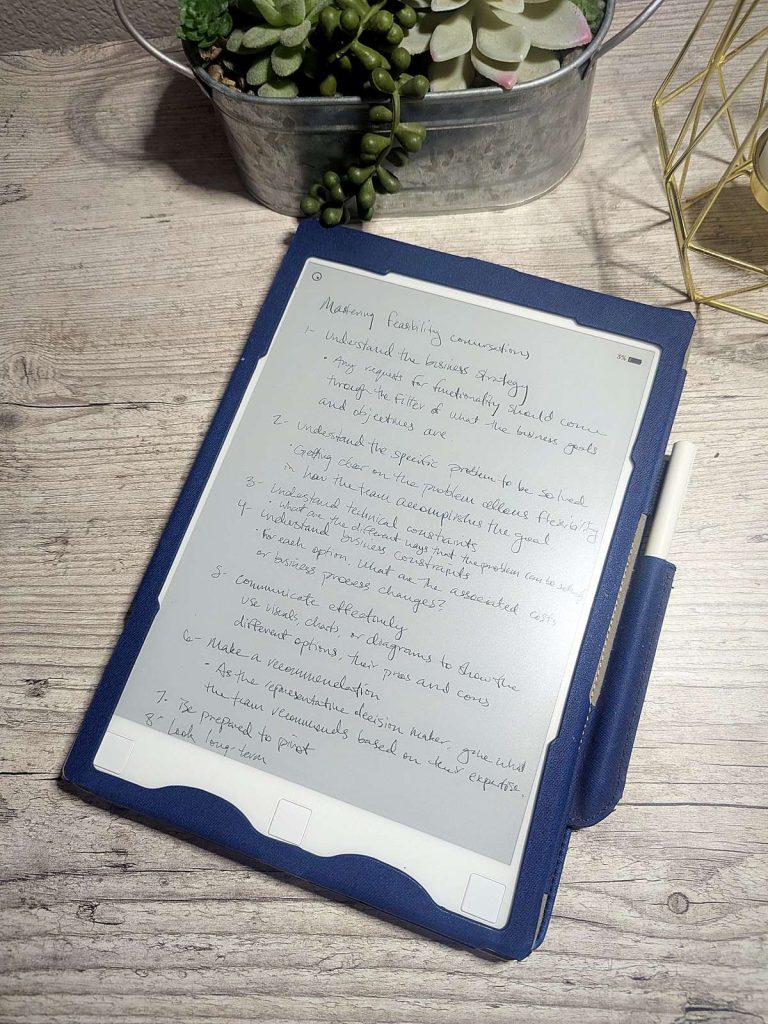 5%
Mastering feasibility conversations
1- Understand the business strategy
• Any requests for functionality should come
through the filter of what the business goals
and objectives are
2- Understand the specific problem to be solved
• Getting clear on the problem allows flexibility
in how the team accomplishes the goal
3- Understand technical constraints
• What are the different ways that the problem can be solved
4- Understand business constraints
• For each option, what are the associated costs
or business process changes?
5- Communicate effectively
use visuals, charts, or diagrams to show the
different options, their pros and cons
6- Make a recommendation
• As the representative decision maker, what
the team recommends based on their expertise.
7- Be prepared to pivot
8- Look long-term